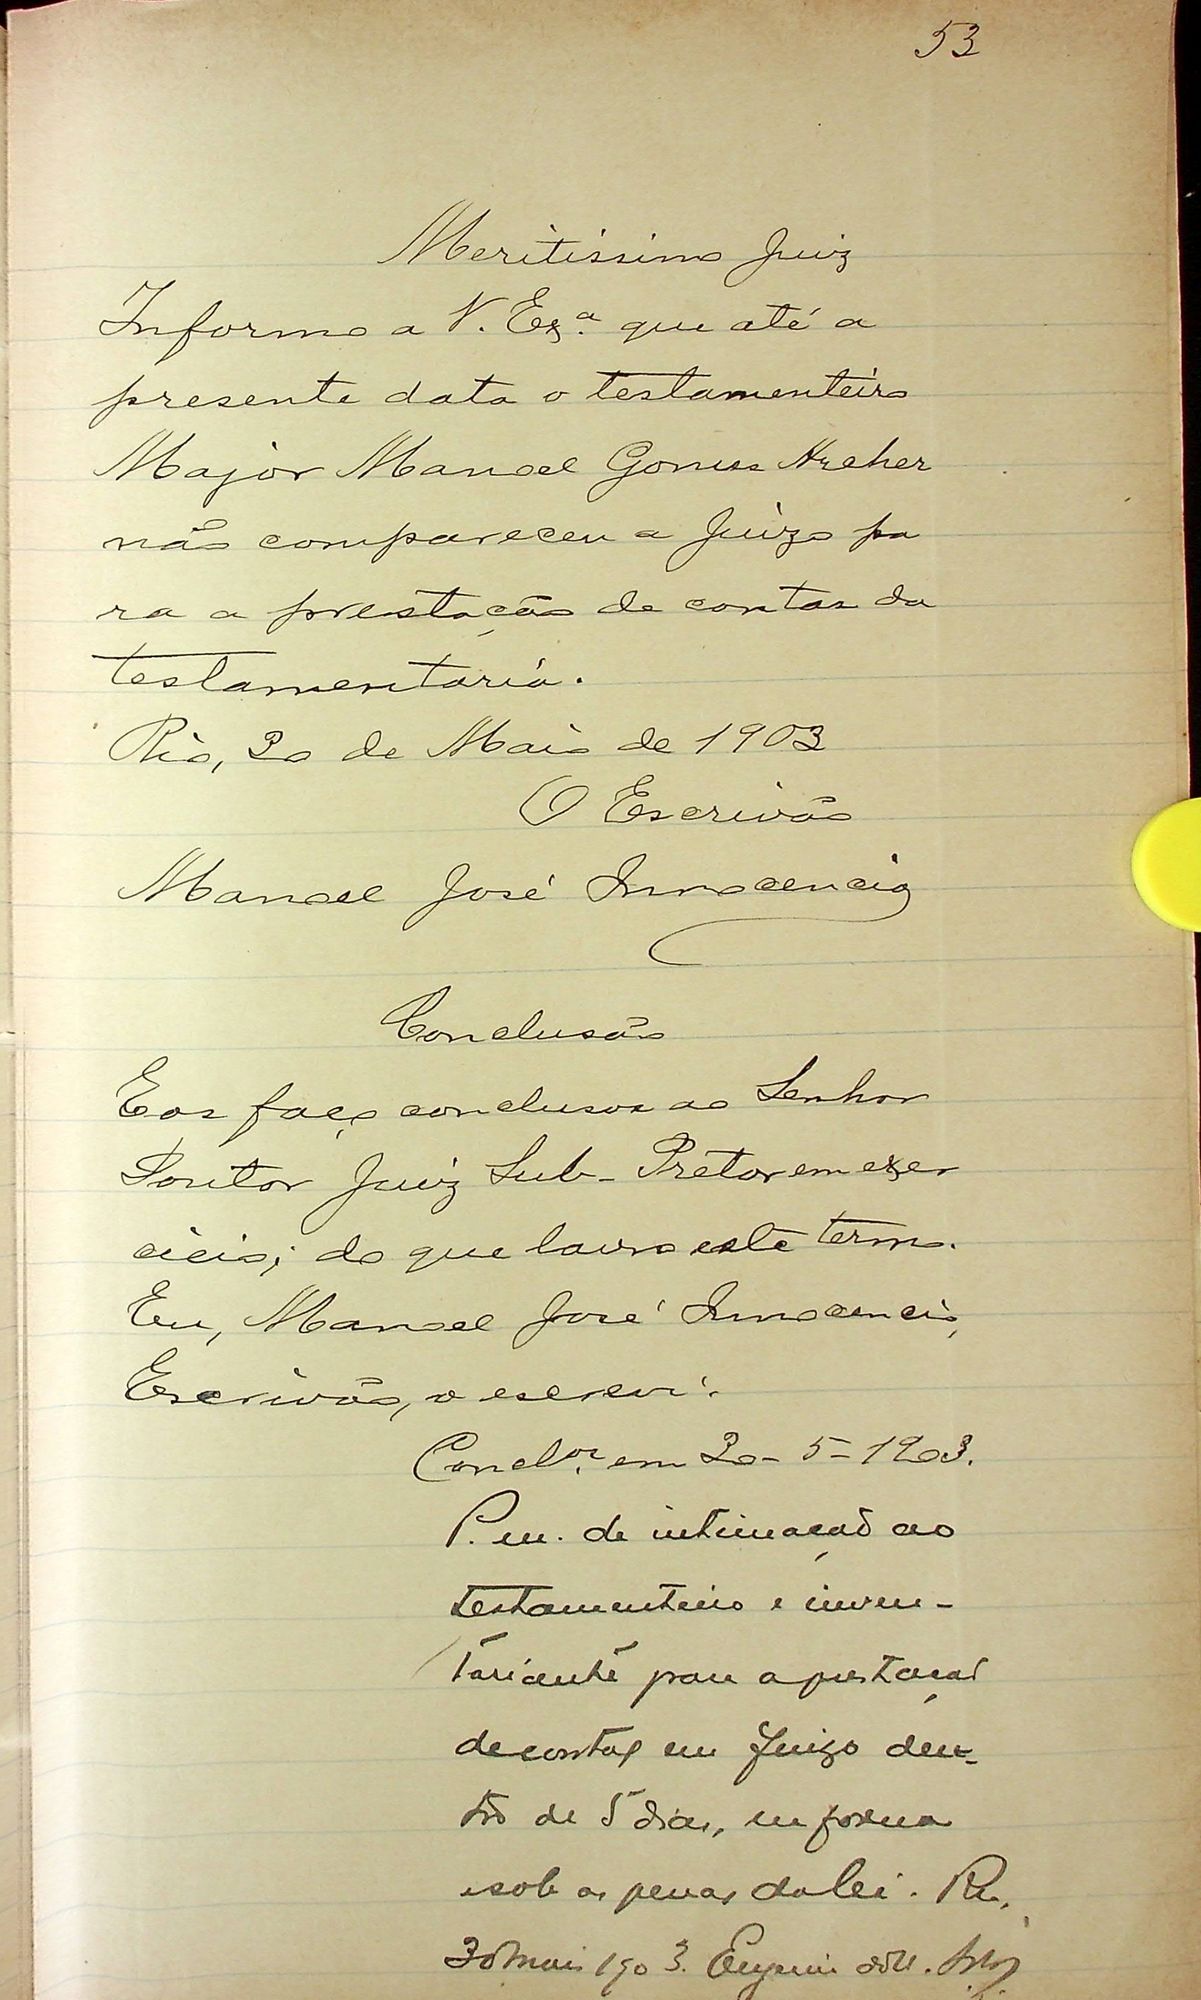 53
Meritissimo Juiz
Informo a V. Exª. que até a
presente data o testamenteiro
Major Manoel Gomes Archer
não compareceu a Juizo pa
ra a prestação de contas da
testamentaria.
Rio, 30 de Maio de 1903
O Escrivão
Manoel José Innocencio
Conclusão
E os faço conclusos ao Senhor
Doutor Juiz Sub-Pretor em exer
cicio; do que lavro este termo.
Eu, Manoel José Innocencio,
Escrivão, o escrevi.
Concl.os em 30-5-1903.
P. m. de intimação ao
testamenteiro e inven-
tariante para a prestação
de contas em Juizo den-
tro de 5 dias, em forma
e sob as penas da lei. Rio,
30 Maio 1903.